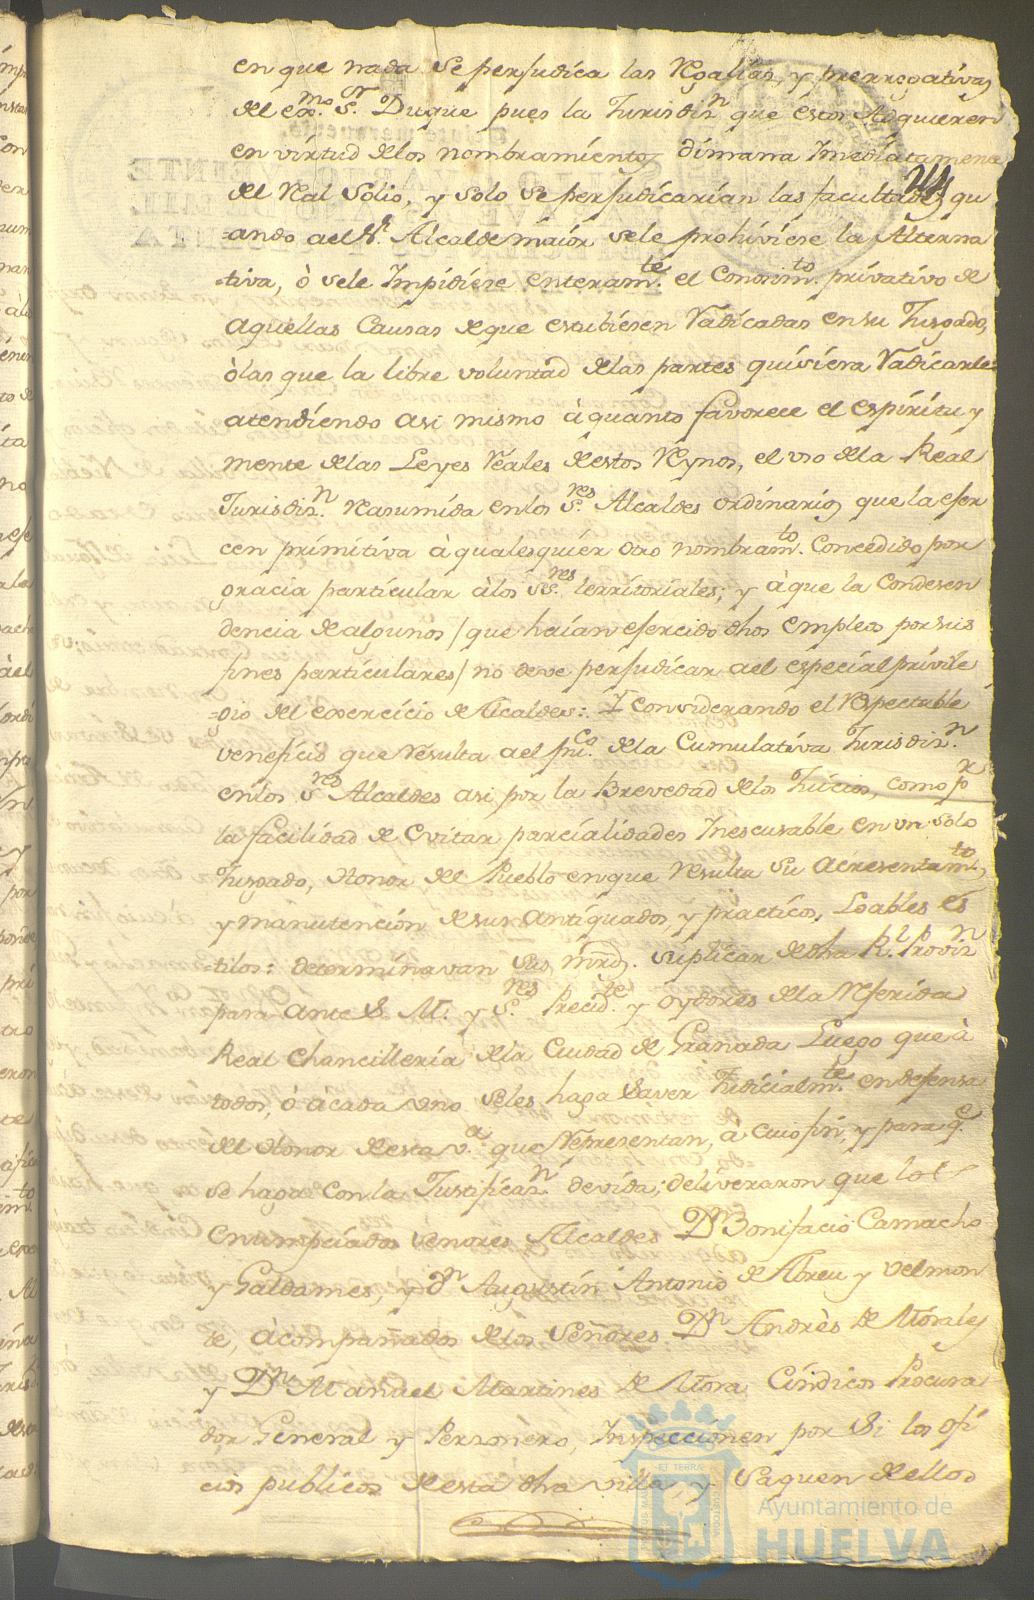 en que nada se perjudica las Regalías, y prerrogativas
del Exmo. Sr. Duque pues la Jurisdizn. que estos Adquieren
en virtud delos nombramientos dimana Imediatamente
del Real Solio, y solo se perjudicarían las facultades qu
=ando ael Sr. Alcalde maior sele prohiviese la Alterna
=tiva, ò sele Impidiese enteramte. el Conosimto. privativo de
aquellas Causas deque estubiesen Radicadas ensu Jusgado,
òlas que la libre voluntad delas partes quisiera Radicarle:
atendiendo asi mismo à quanto favorece el espiritu y
mente delas Leyes Reales destos Reynos, el uso dela Real
Jurisdizn. Reasumida enlos Sres. Alcaldes ordinarios que la eser
cen primitiva à qualesquier otro nombramto. Concedido por
gracia particular àlos SSres. territoriales; y àque la Condesen
dencia de algunos / que haian esercido dhos empleos por sus
fines particulares / no deve perjudicar ael especial privile
=gio del exercicio de Alcaldes: Y considerando el Respectable
veneficio que resulta ael puco. dela Cumulativa Jurisdizn.
enlos Sres Alcaldes asi por la Brevedad delos Juicios, como pr
la facilidad de evitar parcialidades Inescusable en un solo
Jusgado, Honor del Pueblo enque resulta su acresentamto,
y manutención desus antiquados, y practicos, Loables es
=tilos: determinavan sus mrds. suplicar dedha Rl. Provizn
para ante S. M. y Sres Precidte. y oydores dela Referida
Real Chancillería dela Ciudad de Granada Luego que à
todos, ó àcada uno seles haga saver Judicialmte. en defensa
del Honor desta va. que Representan, à cuio fin, y para qe.
se haga con la Justificazn. devida; deliveraron que los
enumpciados señores Alcaldes Dn Bonifacio Camacho
y Galdames, y dn Augustin Antonio de Abreu y Velmon
te, àcompañados delos Señores Dn Andrès de Morales
y Dn. Manuel Martines de Mora Cindicos Procura
dor General y Personèro, Inspeccionen por si los ofi
cios publicos desta dha villa, y saquen dellos
Ayuntamiento de
HUELVA